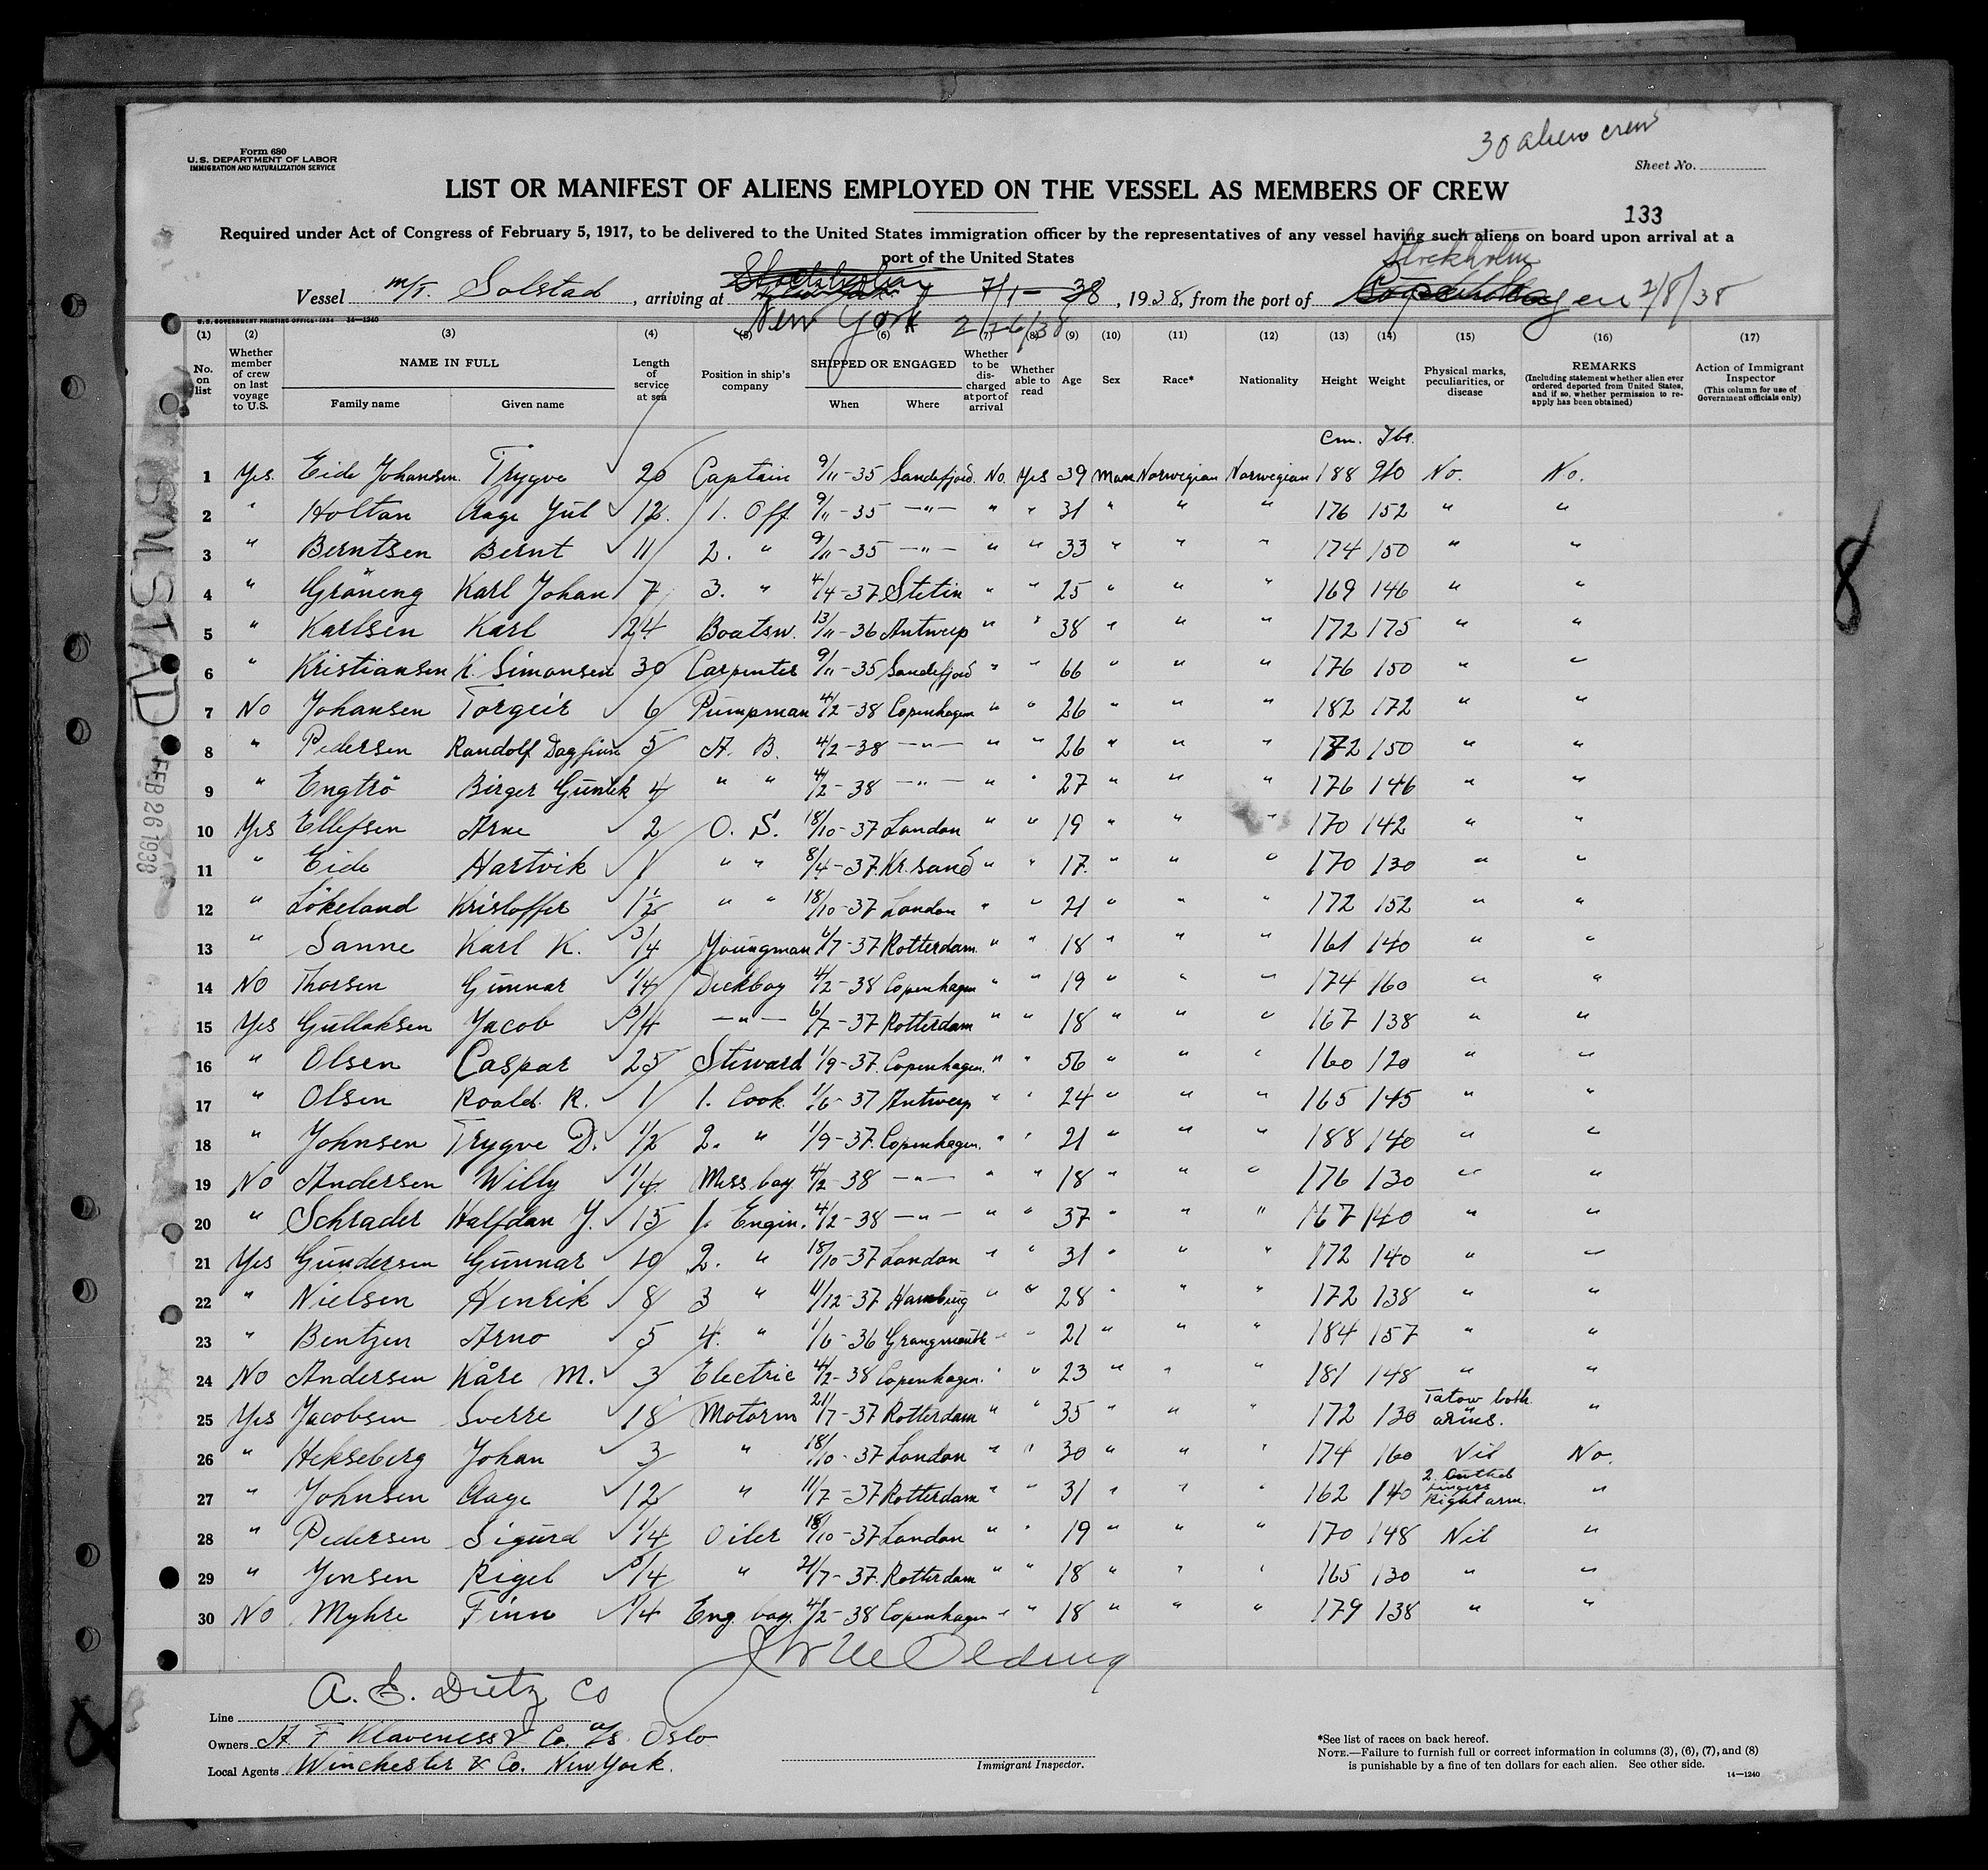 30 alien crew
Form 680
U.S. DEPARTMENT OF LABOR
IMMIGRATION AND NATURALIZATION SERVICE
Sheet No.
LIST OR MANIFEST OF ALIENS EMPLOYED ON THE VESSEL AS MEMBERS OF CREW
133
Required under Act of Congress of February 5, 1917, to be delivered to the United States immigration officer by the representatives of any vessel having such aliens on board upon arrival at a
port of the United States
Stockholm
Vessel M/T. Solstad, arriving at 7/1-38, 1938, from the port of Copenhagen 2/8/38
New York 2/26/38
U.S. GOVERNMENT PRINTING OFFICE: 1934 14—1240
(1) (2) (3) (4) (5) (6) (7) (8) (9) (10) (11) (12) (13) (14) (15) (16) (17)
No. on list
Whether member of crew on last voyage to U.S.
NAME IN FULL
Family name Given name
Length of service at sea
Position in ship's company
SHIPPED OR ENGAGED
When Where
Whether to be discharged at port of arrival
Whether able to read
Age
Sex
Race*
Nationality
Height
Weight
Physical marks, peculiarities, or disease
REMARKS
(Including statement whether alien ever ordered deported from United States, and if so, whether permission to reapply has been obtained)
Action of Immigrant Inspector
(This column for use of Government officials only)
cm. lbs.
1 Yes. Eide Johansen. Trygve 20 Captain 9/11-35 Sandefjord. No. Yes 39 Man Norwegian Norwegian 188 210 No. No.
2 " Holtan Aage Jul 12. 1. Off 9/11-35 —"— " " 31 " " " 176 152 " "
3 " Berntsen Bernt 11 2. " 9/11-35 —"— " " 33 " " " 174 150 " "
4 " Gröneng Karl Johan 7 3. " 4/4-37 Stetin " " 25 " " " 169 146 " "
5 " Karlsen Karl 24 Boatsw. 13/11-36 Antwerp " " 38 " " " 172 175 " "
6 " Kristiansen K. Simonsen 30 Carpenter 9/11-35 Sandefjord " " 66 " " " 176 150 " "
7 No Johansen Torgeir 6 Pumpman 4/2-38 Copenhagen " " 26 " " " 182 172 " "
8 " Pedersen Randolf Dagfinn 5 A. B. 4/2-38 —"— " " 26 " " " 172 150 " "
9 " Engtrö Birger 4 " " 4/2-38 —"— " " 27 " " " 176 146 " "
10 Yes Ellefsen Arne 2 O. S. 18/10-37 London " " 19 " " " 170 142 " "
11 " Eide Hartvik 1 " " 8/4-37 Kr. sand " " 17. " " " 170 130 " "
12 " Lökeland Kristoffer 1½ " " 18/10-37 London " " 21 " " " 172 152 " "
13 " Sanne Karl K. 3/4 Youngman 6/7-37 Rotterdam. " " 18 " " " 161 140 " "
14 No Thorsen Gunnar 1/4 Deckboy 4/2-38 Copenhagen " " 19 " " " 174 160 " "
15 Yes Gullaksen Jacob 3/4 —"— 6/7-37 Rotterdam " " 18 " " " 167 138 " "
16 " Olsen Caspar 25 Steward 1/9-37. Copenhagen. " " 56 " " " 160 120 " "
17 " Olsen Roald. R. 1 1. Cook. 1/6-37 Antwerp " " 24 " " " 165 145 " "
18 " Johnsen Trygve D. 1/2 2. " 1/9-37. Copenhagen. " " 21 " " " 188 140 " "
19 No Andersen Willy 1/4 Mess boy 4/2-38 —"— " " 18 " " " 176 130 " "
20 " Schrader Halfdan J. 15 1. Engin. 4/2-38 —"— " " 37 " " " 167 140 " "
21 Yes Gundersen Gunnar 10 2. " 18/10-37 London " " 31 " " " 172 140 " "
22 " Nielsen Henrik 8 3 " 11/12-37 Hamburg " " 28 " " " 172 138 " "
23 " Bentzen Arno 5 4. " 1/6-36 Grangmouth " " 21 " " " 184 157 " "
24 No Andersen Kåre M. 3 Electric 4/2-38 Copenhagen. " " 23 " " " 181 148 " "
25 Yes Jacobsen Sverre 18 Motorm 21/7-37 Rotterdam " " 35 " " " 172 130 Tatow both arms. "
26 " Hekseberg Johan 3 " 18/10-37 London " " 30 " " " 174 160 Nil No.
27 " Johnsen Aage 12 " 11/7-37 Rotterdam " " 31 " " " 162 140 2 fingers Right arm. "
28 " Pedersen Sigurd 1/4 Oiler 18/10-37 London " " 19 " " " 170 148 Nil "
29 " Jensen Rigel 3/4 " 21/7-37 Rotterdam " " 18 " " " 165 130 " "
30 No Myhre Finn 1/4 Eng. boy. 4/2-38 Copenhagen " " 18 " " " 179 138 " "
SOLSTAD FEB 26 1938
8
A. E. Dietz Co
Line
Owners A F Klaveness & Co. a/s. Oslo
Local Agents Winchester & Co. New York.
Immigrant Inspector.
*See list of races on back hereof.
NOTE.—Failure to furnish full or correct information in columns (3), (6), (7), and (8)
is punishable by a fine of ten dollars for each alien. See other side.
14—1240